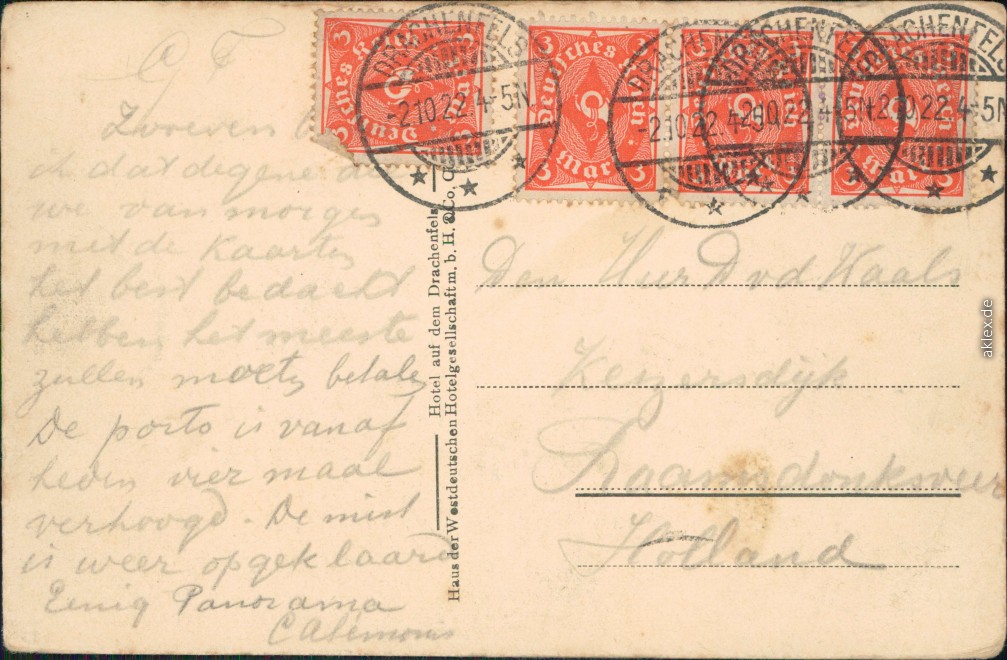 G F
Zooeven
ik dat degene die
we van morgen
met de kaarten
het best bedacht
hebben het meeste
zullen moeten betalen
De porto is vanaf
heden vier maal
verhoogd. De mist
is weer opgeklaard
Eenig Panorama
Hotel auf dem Drachenfels
Haus der Westdeutschen Hotelgesellschaft m. b. H. & Co.
3 Deutsches Reich 3
3 Mark 3
DRACHENFELS
-2.10.22.4-5N
DRACHENFELS
-2.10.22.4-5N
DRACHENFELS
-2.10.22.4-5N
DRACHENFELS
-2.10.22.4-5N
Den Heer D vd Kaals
Keizersdijk
Raamsdonksveer
Holland
aklex.de